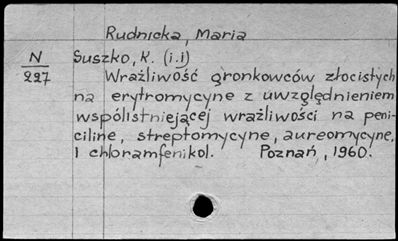 Rudnicka, Maria
N Suszko, K. (i.i)
227 Wrażliwość gronkowców złocistych
na erytromycynę z uwzględnieniem
współistniejącej wrażliwości na peni-
cilinę, streptomycynę, aureomycynę,
i chloramfenikol. Poznań, 1960.